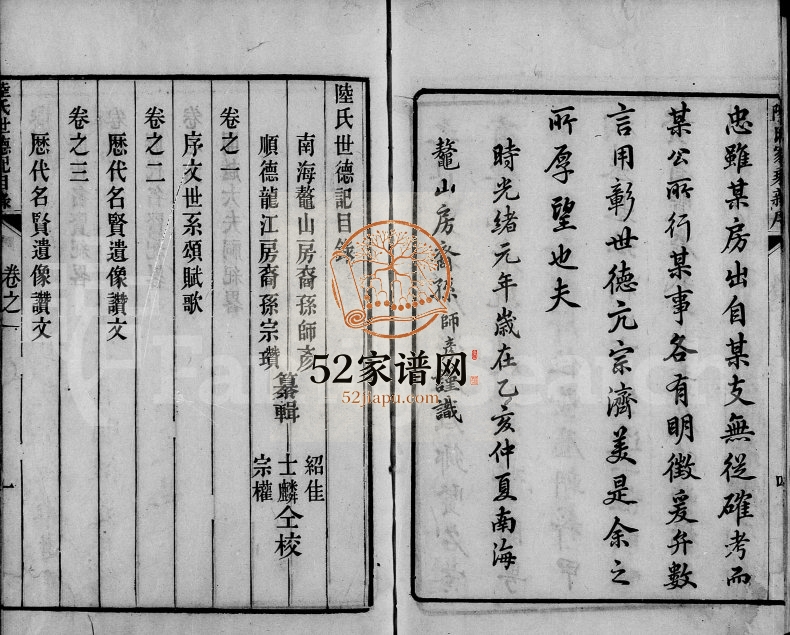 忠雖某房出自某支無從確考而
某公所行某事各有明徵爰弁數
言用彰世德亢宗濟美是余之
所厚望也夫
時光緒元年歲在乙亥仲夏南海
鼇山房裔孫師彥謹識
陸氏世德記目錄
南海鼇山房裔孫師彥
順德龍江房裔孫宗瓚
纂輯
紹佳
士麟
宗權
仝校
卷之一
序文世系頌賦歌
卷之二
歷代名賢遺像讚文
卷之三
歷代名賢遺像讚文
陸氏世德記目錄
卷之一
一
52家谱网
52jiapu.com